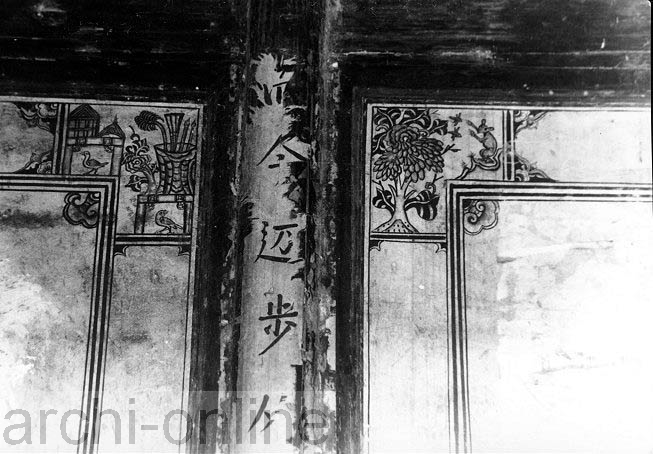 今迈步从
archi-online